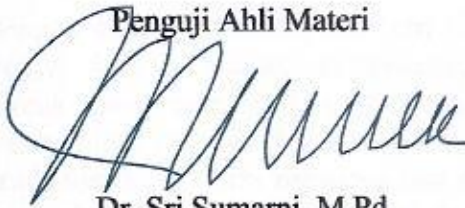 Penguji Ahli Materi
Dr. Sri Sumarni, M.Pd